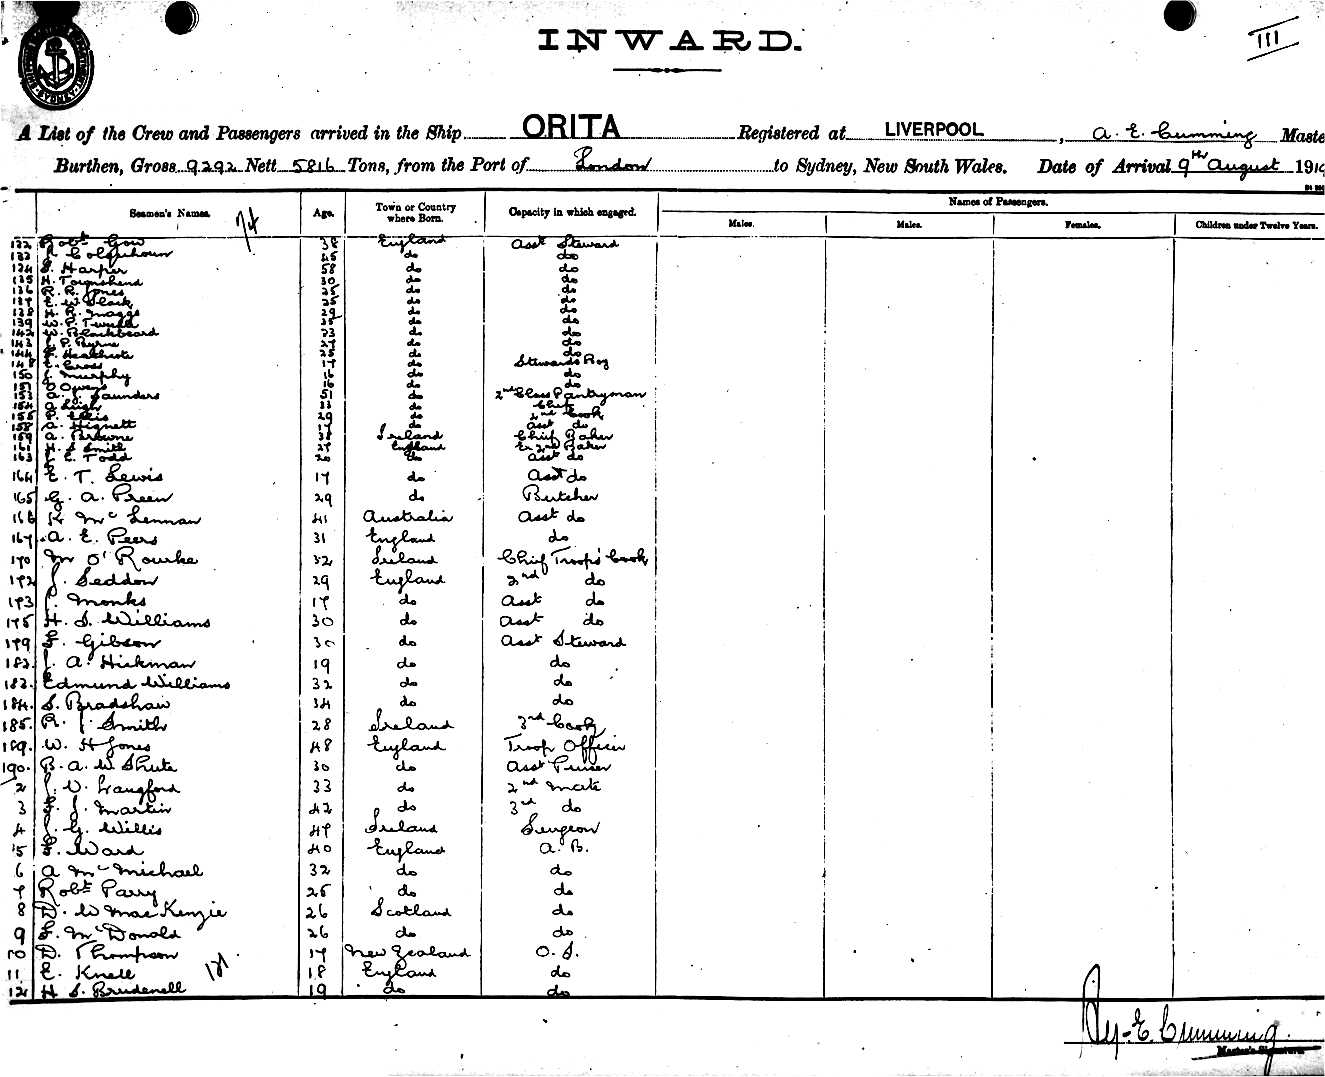 INWARD.
III
A List of the Crew and Passengers arrived in the Ship ORITA Registered at LIVERPOOL, A. E. Cumming Maste
Burthen, Gross 9292 Nett 5816 Tons, from the Port of London to Sydney, New South Wales. Date of Arrival 9th August 191
Seamen's Names. Age. Town or Country where Born. Capacity in which engaged. Names of Passengers.
Males. Males. Females. Children under Twelve Years.
74
132 Robt Gow 38 England Asst Steward
133 Colquhoun 45 do do
134 S. Harper 58 do do
135 H. Townshend 30 do do
136 R. R. Jones 25 do do
137 E. W. Slack 25 do do
138 H. R. Maggs 29 do do
139 W. P. 35 do do
142 W. Blackbeard 23 do do
143 P. Byrne 27 do do
144 Heathcote 25 do do
148 Cross 17 do Stewards Boy
150 J. Murphy 16 do do
151 Owens 16 do do
153 A. J. Saunders 51 do 2nd Class Pantryman
154 33 do Chief
155 P. Ellis 29 do 2nd Cook
158 A. Hignett 17 do Asst do
159 A. Browne 38 Ireland Chief Baker
161 H. S. Smith 27 England Ex 2nd Baker
163 E. Todd 20 do Asst do
164 E. T. Lewis 17 do Asst do
165 G. A. Preen 29 do Butcher
166 K McLennan 41 Australia Asst do
167 A. E. Peers 31 England do
170 M O'Rourke 32 Ireland Chief Troops' Cook
172 J. Seddon 29 England 2nd do
173 J. Monks 17 do Asst do
175 H. S. Williams 30 do Asst do
179 F. Gibson 30 do Asst Steward
182. J. A. Hickman 19 do do
183. Edmund Williams 32 do do
184. S. Bradshaw 34 do do
185. R. J. Smith 28 Ireland 3rd Cook
189. W. H Jones 48 England Troop Officer
190. B. A. W Shute 30 do Asst Purser
2 J. V. Langford 33 do 2nd Mate
3 F. J. Martin 42 do 3rd do
4 J. G. Willis 47 Ireland Surgeon
5 F. Ward 40 England A. B.
6 A McMichael 32 do do
7 Robt Parry 25 do do
8 D. W MacKenzie 26 Scotland do
9 F. McDonald 26 do do
10 D. Thompson 17 New Zealand O. S.
11 E. Knell 18 England do
12 H S. Brudenell 19 do do
E. Cumming
Master's Signature